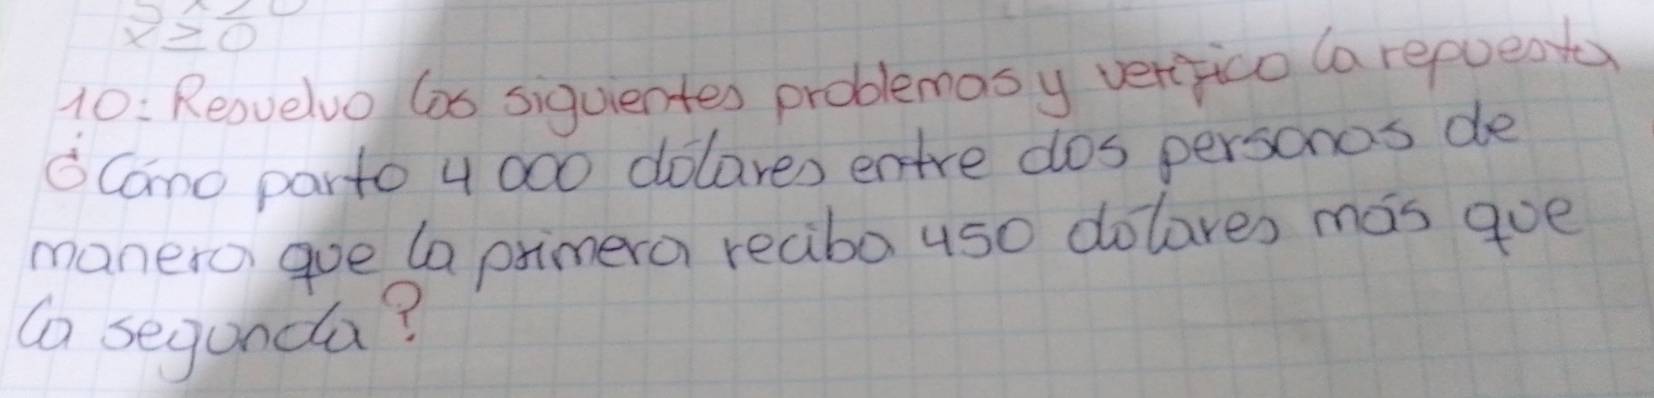 x ≥ 0
10: Resuelvo los siguientes problemas y verifico la repuesta
¿Cómo parto 4 000 dólares entre dos personas de
manera que la primera reciba 450 dólares más que
la segunda?